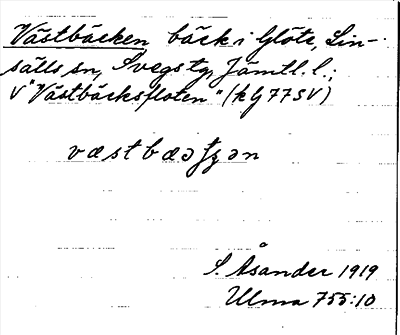 Västbäcken bäck i Glöte, Lin-
sälls sn, Svegs tg, Jämtl. l.;
V "Västbäcksfloten" (kg 77SV)
S. Åsander 1919
Ulma 755:10